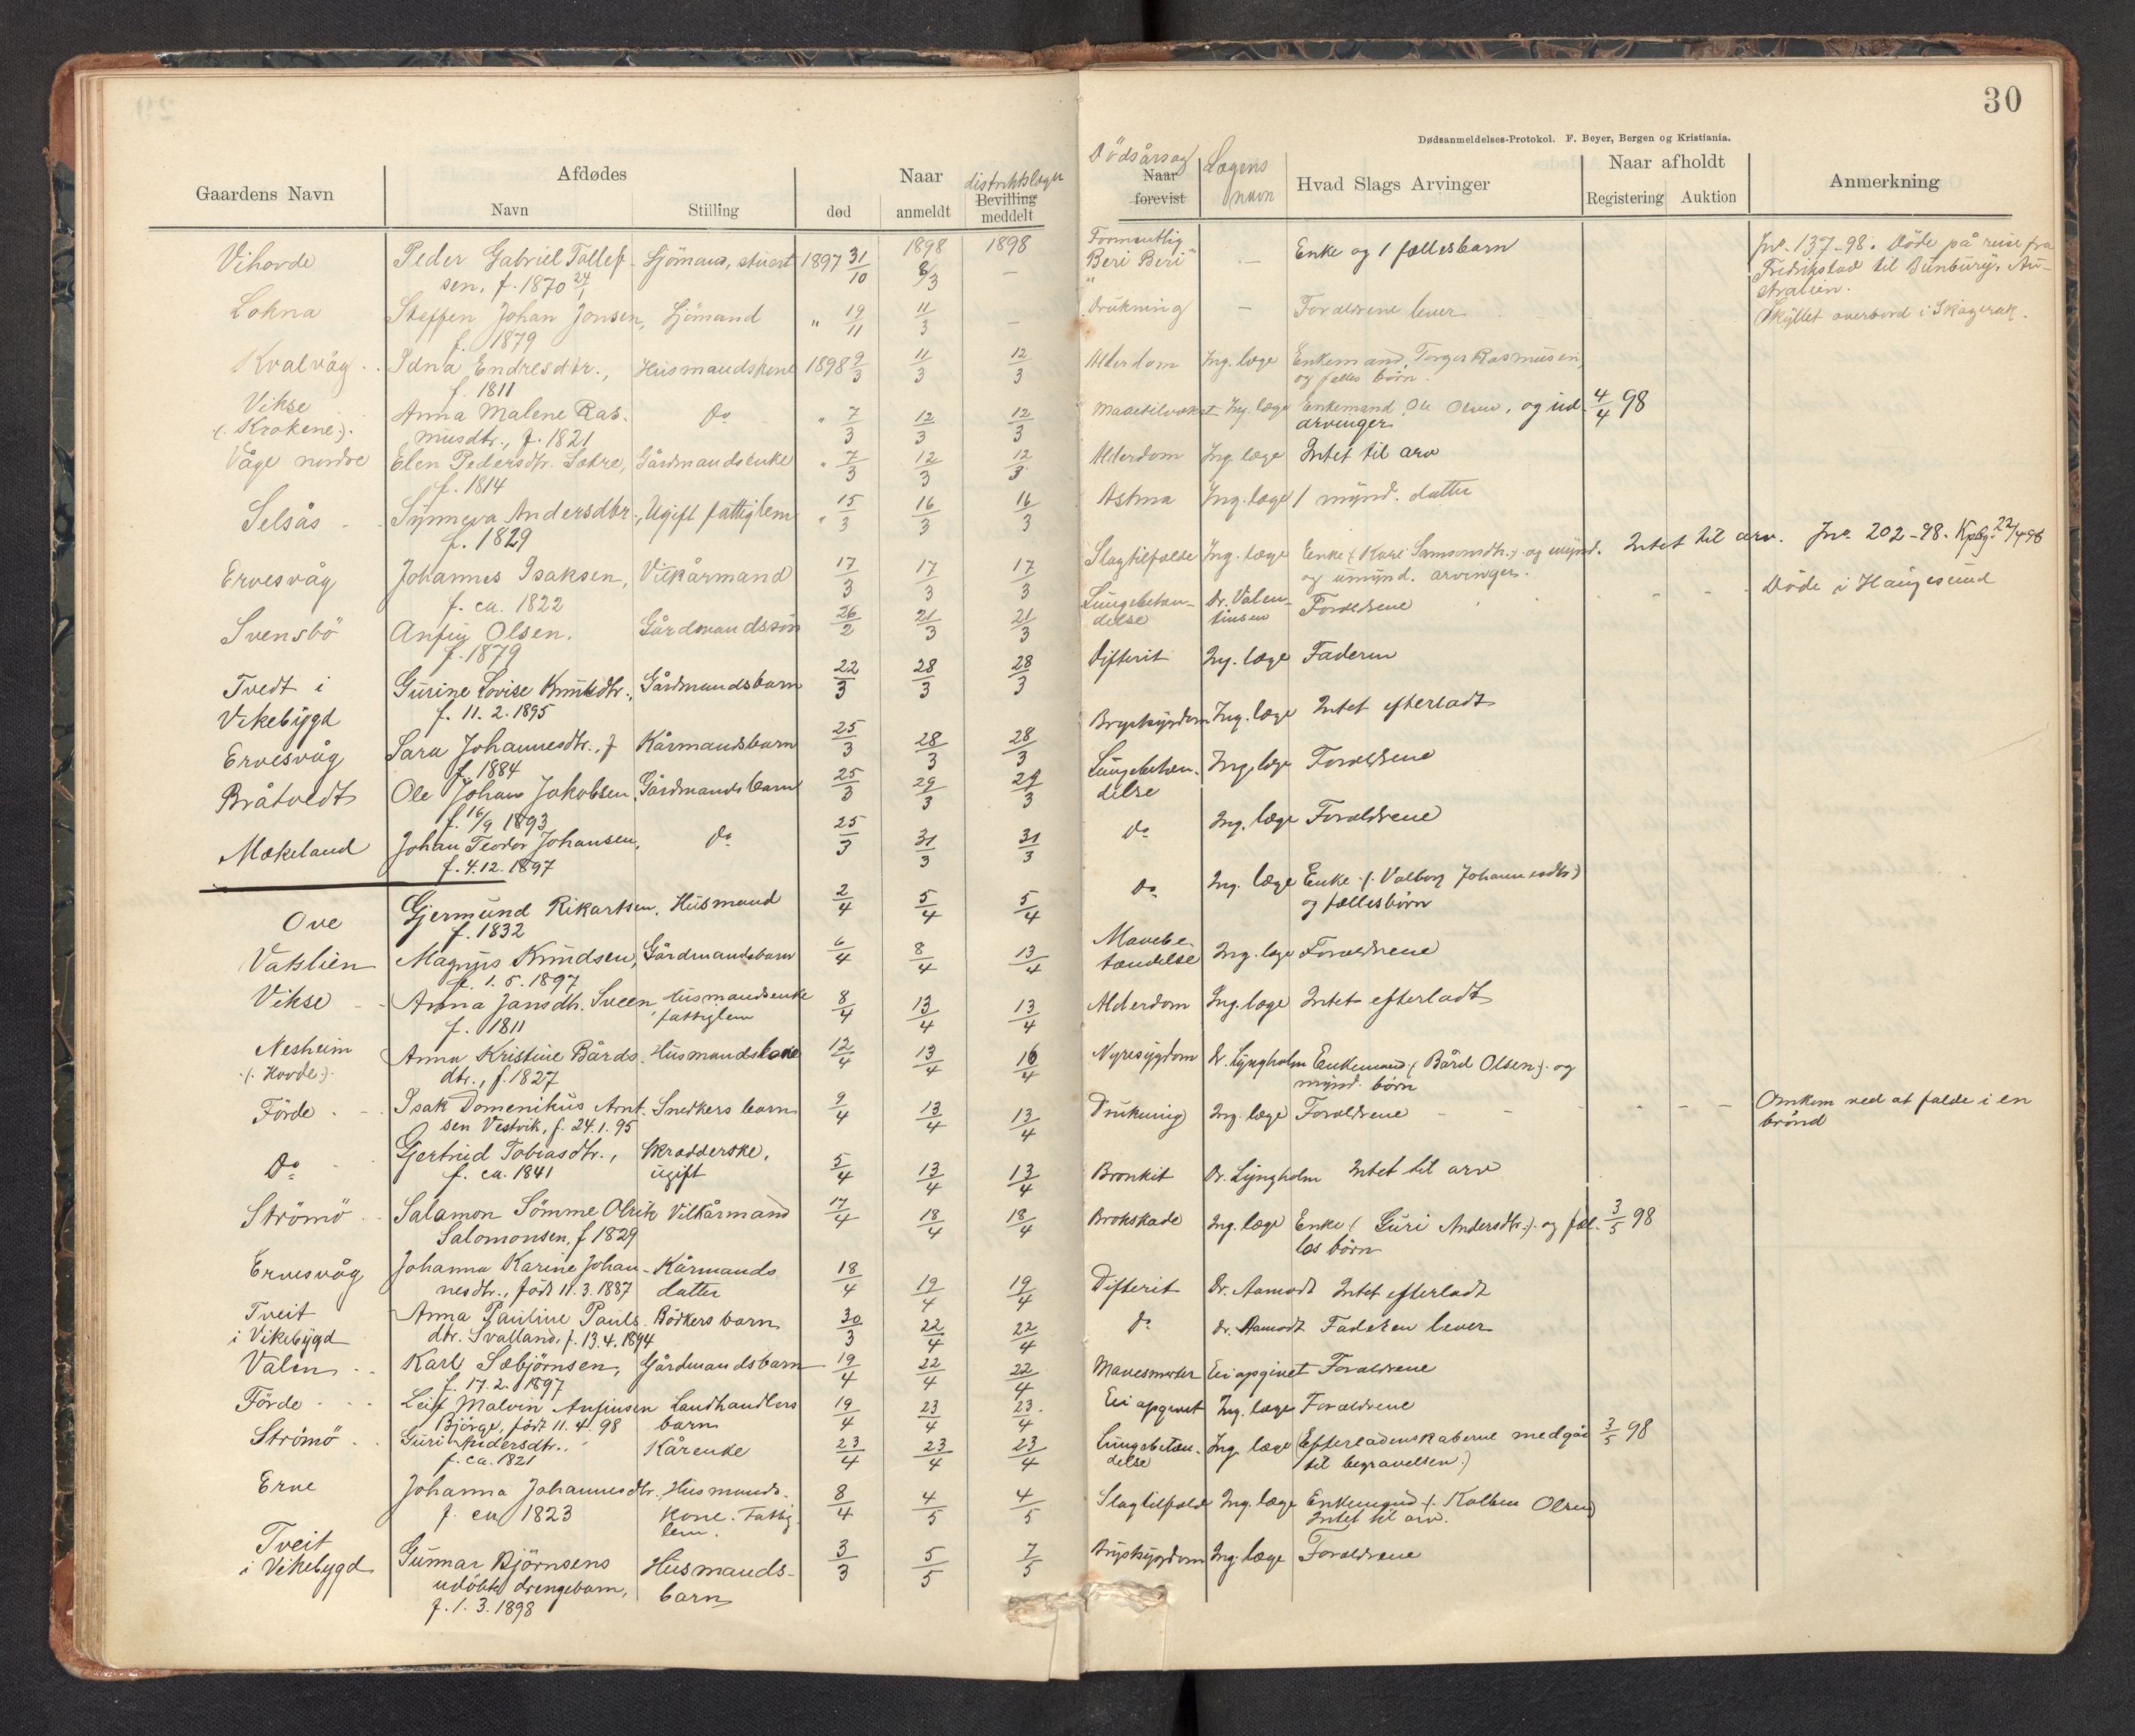 30
Dødsanmeldelses-Protokol. F. Beyer, Bergen og Kristiania.
Gaardens Navn
Afdødes
Navn
Stilling
Naar
død
anmeldt
distriktslægen
Bevilling
meddelt
Dödsårsag
Naar
forevist
Lægens
navn
Hvad Slags Arvinger
Naar afholdt
Registering
Auktion
Anmerkning
1898 1898
Vihovde Peder Gabriel Tollef- Sjömand, stuert 1897 31/10 8/3 — Formentlig — Enke og 1 fællesbarn Jnr. 137-98. Döde på reise fra
sen, f. 1870 24/1 "Beri Beri" Fredrikstad til Bunbury, Au-
stralien.
Lokna Steffen Johan Jonsen, Sjömand " 19/11 11/3 — Drukning — Forældrene lever Skyllet overbord i Skagerak.
f. 1879
Kvalvåg Idna Endresdtr., Husmandskone 1898 9/3 11/3 12/3 Alderdom Ing. læge Enkemand, Torger Rasmussen,
f. 1811 og fælles börn.
Vikse Anna Malene Ras- Do " 7/3 12/3 12/3 Ing. læge Enkemand, Ole Olsen, og ud- 4/4 98
(: Krokene :) musdtr., f. 1821 arvinger
Våge nordre Elen Pedersdtr. Sætre, Gårdmandsenke " 7/3 12/3 12/3 Alderdom Ing. læge Intet til arv
f. 1814
Selsås Synneva Andersdtr., Ugift fattiglem " 15/3 16/3 16/3 Astma Ing. læge 1 mynd. datter
f. 1829
Ervesvåg Johannes Isaksen, Vilkårmand 17/3 17/3 17/3 Slagtilfælde Ing. læge Enke (: Kari Samsonsdtr. :) og mynd. Intet til arv. Jnr. 202-98. 22/4 98
f. ca. 1822 og umynd. arvinger.
Svensbö Anfin Olsen, Gårdmandssön 26/2 21/3 21/3 Lungebetæn- Dr. Valen- Forældrene Döde i Haugesund
f. 1879 delse tinsen
Tvedt i Gurine Lovise Knutsdtr., Gårdmandsbarn 22/3 28/3 28/3 Difterit Ing. læge Faderen
Vikebygd f. 11. 2. 1895
Ervesvåg Sara Johannesdtr., f Kårmandsbarn 25/3 28/3 28/3 Brystsygdom Ing. læge Intet efterladt
f. 1884
Bråtvedt Ole Johan Jakobsen, Gårdmandsbarn 25/3 29/3 29/3 Lungebetæn- Ing. læge Forældrene
f. 16/9 1893 delse
Mækeland Johan Teodor Johansen, Do 25/3 31/3 31/3 Do Ing. læge Forældrene
f. 4. 12. 1897
Ove Gjermund Rikartsen, Husmand 2/4 5/4 5/4 Do Ing. læge Enke (: Valborg Johannesdtr :)
f. 1832 og fællesbörn
Vatslien Magnus Knudsen, Gårdmandsbarn 6/4 8/4 13/4 Mavebe- Ing. læge Forældrene
f. 1. 5. 1897 tændelse
Vikse Anna Jansdtr. Sveen, Husmandsenke 8/4 13/4 13/4 Alderdom Ing. læge Intet efterladt
f. 1811 fattiglem
Nesheim Anna Kristine Bårds- Husmandskone 12/4 13/4 16/4 Nyresygdom Dr. Lyngholm Enkemand (: Bård Olsen :) og
(: Hovde :) dtr., f. 1827 mynd. börn
Förde Isak Domenikus Arnt- Snedkers barn 9/4 13/4 13/4 Drukning Ing. læge Forældrene Omkom ved at falde i en
sen Vestvik, f. 24. 1. 95 brönd
Do Gjertrud Tobiasdtr., Skrædderske, 5/4 13/4 13/4 Bronkit Dr. Lyngholm Intet til arv
f. ca. 1841 ugift
Strömö Salamon Sömme Olrik Vilkårmand 17/4 18/4 18/4 Brokskade Ing. læge Enke (: Guri Andersdtr. :) og fæl- 3/5 98
Salomonsen, f 1829 les börn
Ervesvåg Johanna Karine Johan- Kårmands 18/4 19/4 19/4 Difterit Dr. Aamodt Intet efterladt
nesdtr., född 11. 3. 1887 datter
Tveit Anna Pauline Pauls- Bödkers barn 30/3 22/4 22/4 Do Dr. Aamodt Faderen lever
i Vikebygd dtr. Svalland, f. 13. 4. 1894
Valen Karl Sæbjörnsen, Gårdmandsbarn 19/4 22/4 22/4 Mavesmerter Ei opgivet Forældrene
f. 17. 2. 1897
Förde Leif Malvin Anfinsen Landhandlers 19/4 23/4 23/4 Ei opgivet Ing. læge Forældrene
Björge, född 11. 4. 98 barn
Strömö Guri Andersdtr., Kårenke 23/4 23/4 23/4 Lungebetæn- Ing. læge (Efterladenskaberne medgår 3/5 98
f. ca. 1821 delse til begravelsen.)
Erve Johanna Johannesdtr., Husmands- 8/4 4/5 4/5 Slagtilfælde Ing. læge Enkemand (: Kolben Olsen
f. ca 1823 kone. Fattig- Intet til arv.
lem.
Tveit Gunnar Björnsens Husmands- 3/3 5/5 7/5 Brystsygdom Ing. læge Forældrene
i Vikebygd udöbte drengebarn, barn
f. 1. 3. 1898